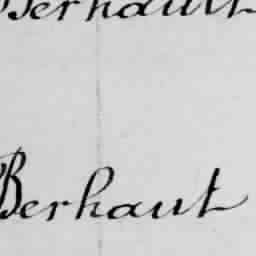 Berhault
Berhaut